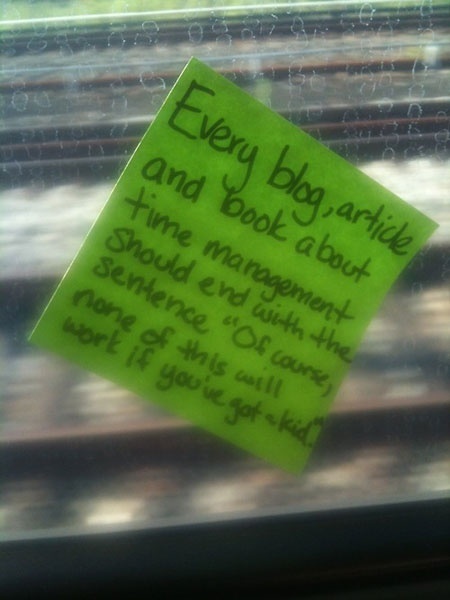 Every blog, article
and book about
time management
should end with the
sentence "Of course,
none of this will
work if you've got a kid."